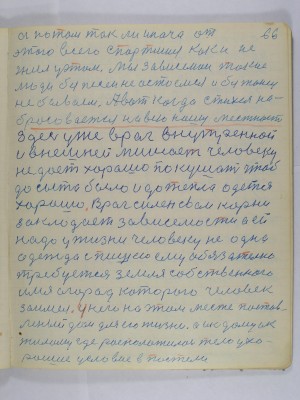 а потом так ли иначе от 66
этого всего спартиция как и не
жил у том. Мы зависимы такие
люди бу песен не остомся и бу тому
не бываем. А вот когда стихия на-
брасовается на всю нашу местность
Здесь уже враг внутренной
и внешней мишает человеку
не дает харашо покушат чтоб
до сыта было и до тепла одется
харашо. Враг силен свои карни
закладает зависемости а ей
надо у жизни человеку не одна
одежда с пищею ему обязательно
требуется земля собственного
имя огарад которого человек
занимал. У него на этом месте постав-
ленный дом для его жизни. а к дому как
жилому где расположилось тело у ха-
рошие условие в постели